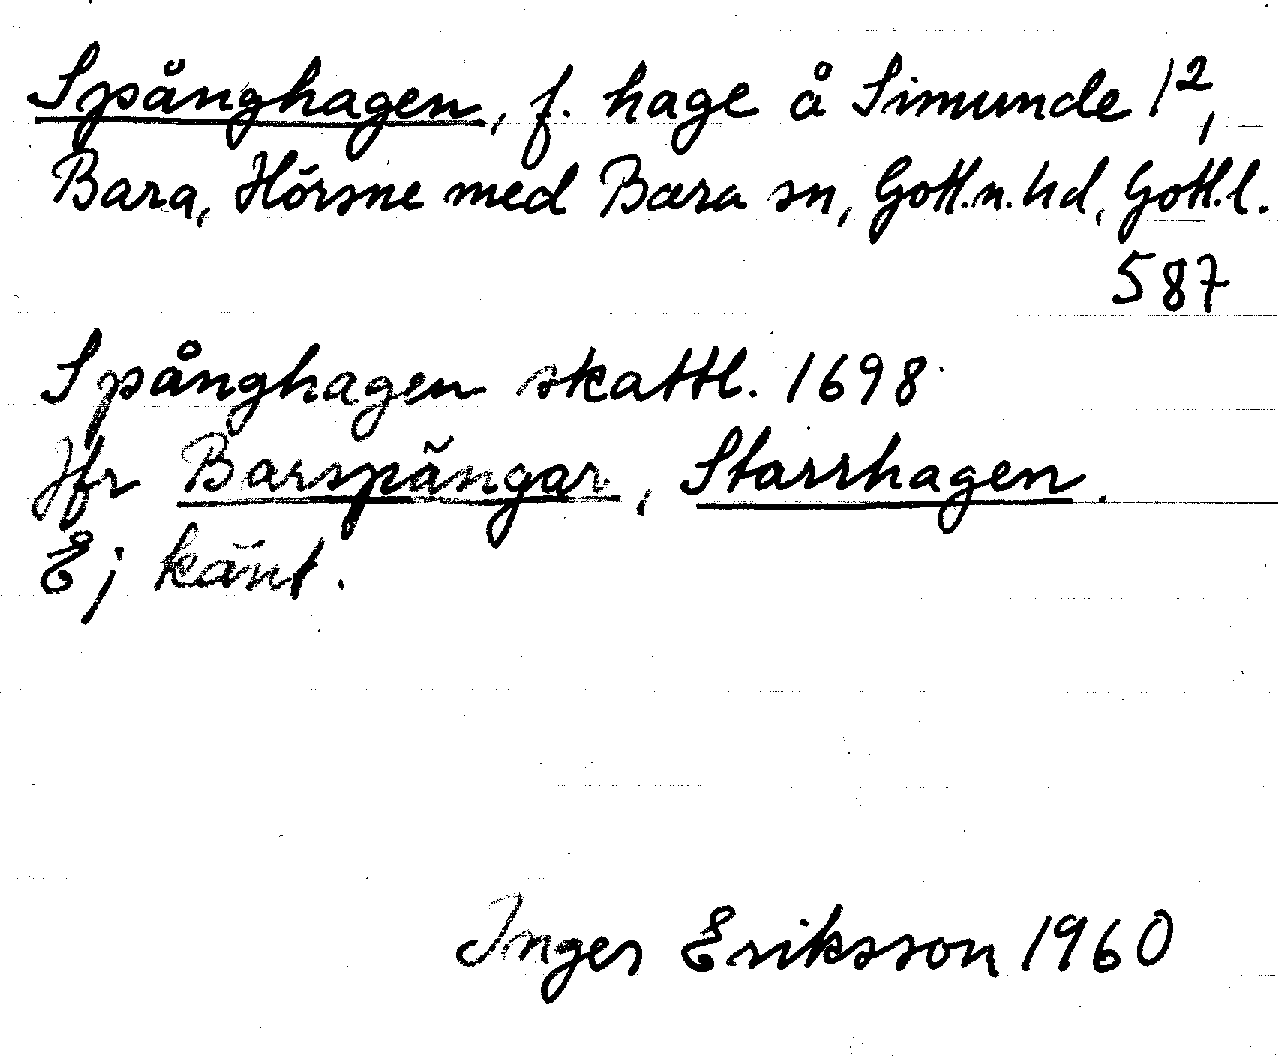 Spånghagen, f. hage å Simunde 1²,
Bara, Hörsne med Bara sn, Gotl.n.hd, Gotl.l.
587
Spånghagen skattl. 1698
Jfr Barspängar, Starrhagen.
Ej känt.
Inger Eriksson 1960